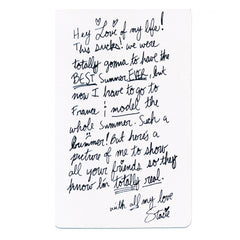 Hey Love of my life!
This sucks! we were
totally gonna to have the
BEST Summer EVER, but
now I have to go to
France & model the
whole Summer. Such a
bummer! But here's a
picture of me to show
all your friends so they
know I'm totally real!
with all my love
Stacie